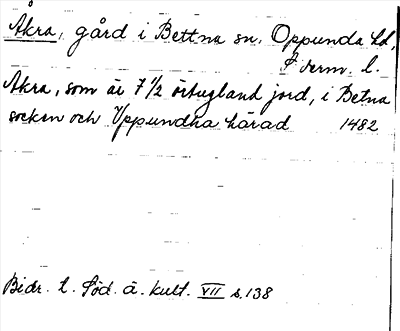 Åkra, gård i Bettna sn, Oppunda hd,
Söderm. l.
Akra, som är 7 1/2 örtugland jord, i Betna
socken och Vppundha härad 1482
Bidr. t. Söd. ä. kult. VII s. 138